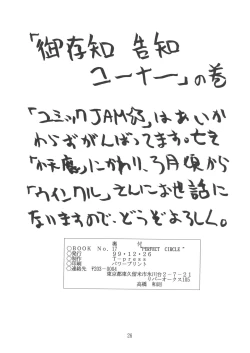 「御存知 告知
コーナー」の巻
「コミックJAM誌」はあいか
わらずがんばってます。亡き
にかわり、3月頃から
「ウインクル」さんにお世話に
なりますので、どうぞよろしく。
奥 付
○BOOK No.17 "PERFECT CIRCLE"
○発行 99・12・26
○制作 T-press
○印刷 パワープリント
○連絡先 〒203-0004
東京都東久留米市氷川台2-7-21
リバーオークス105
高橋
26